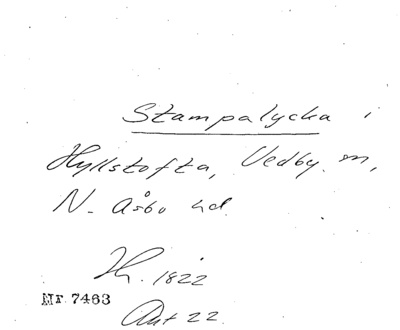 Stampalycka i
Hyllstofta, Vedby sn,
N. Åsbo hd.
Hr. 1822
Nr 7463
Akt 22